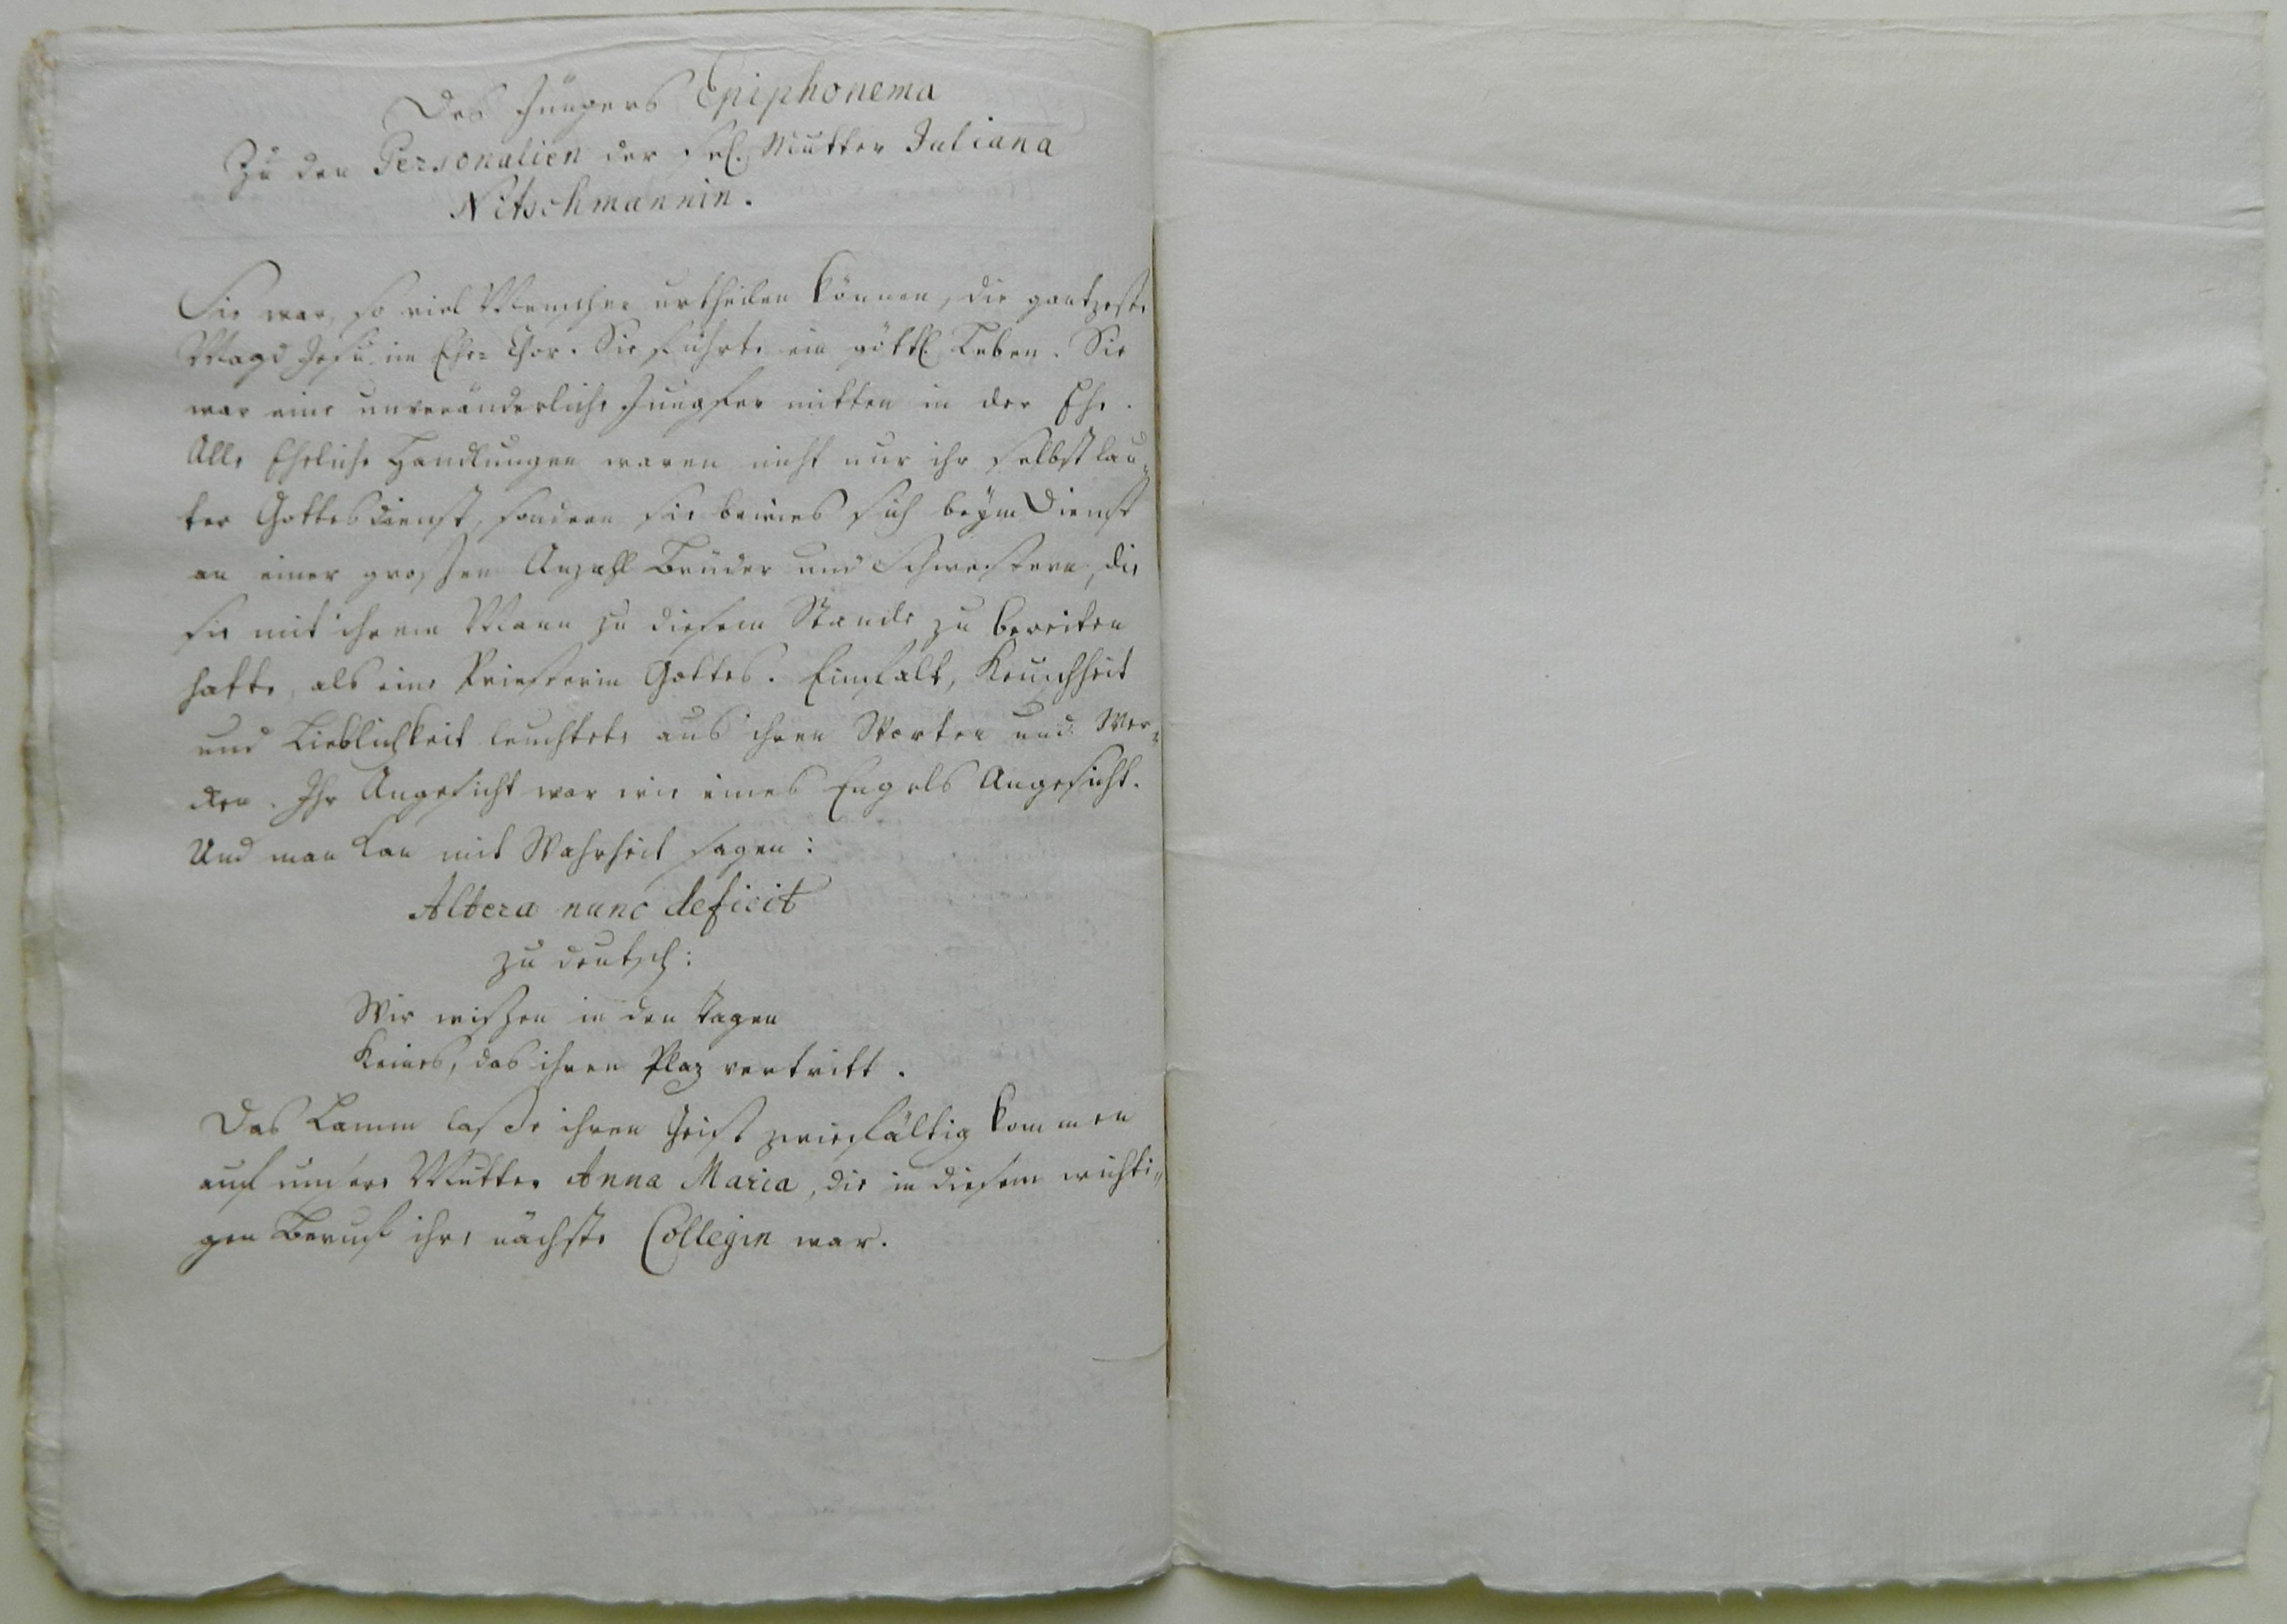 Des Jüngers Epiphonema
Zu den Personalien der sel. Mutter Juliana
Nitschmannin.
Sie war, so viel Menschen urtheilen können, die gantzeste
Magd Jesu im Ehe-Chor. Sie führte ein göttl. Leben. Sie
war eine unveränderliche Jungfer mitten in der Ehe.
Alle Eheliche Handlungen waren nicht nur ihr selbst lau-
ter Gottesdienst, sondern sie bewies sich beym Dienst
an einer großen Anzahl Brüder und Schwestern, die
sie mit ihrem Mann zu diesem Stande zu bereiten
hatte, als eine Priesterin Gottes. Einfalt, Keuschheit
und Lieblichkeit leuchtete aus ihren Worten und Wer-
ken. Ihr Angesicht war wie eines Engels Angesicht.
Und man kan mit Wahrheit sagen:
Altera nunc deficit
zu deutsch:
Wir wißen in den Tagen
Keines, das ihren Plaz vertritt.
Das Lamm laße ihren Geist zwiefältig kommen
auf unsere Mutter Anna Maria, die in diesem wichti-
gen Beruf ihre nächste Collegin war.